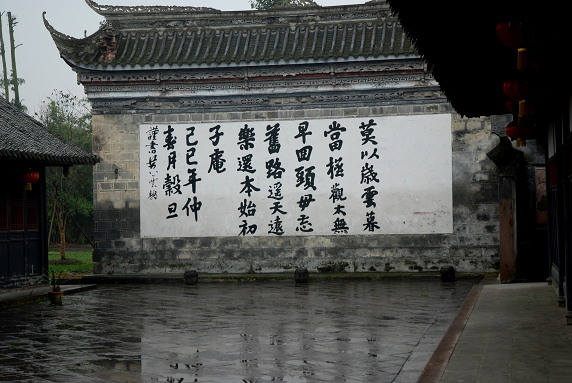 莫以歲雲暮
當極觀太無
早回頭毋忘
舊路遥天遠
樂還本始初
子庵
己巳年仲
春月穀旦
謹書